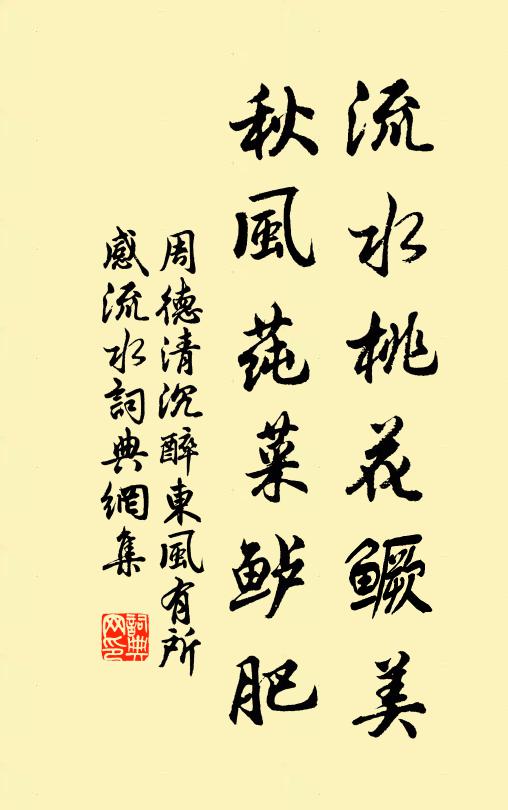 流水桃花鳜美
秋風莼菜鲈肥
周德清沉醉東風有所
感流水詞典網集
詞典
网印